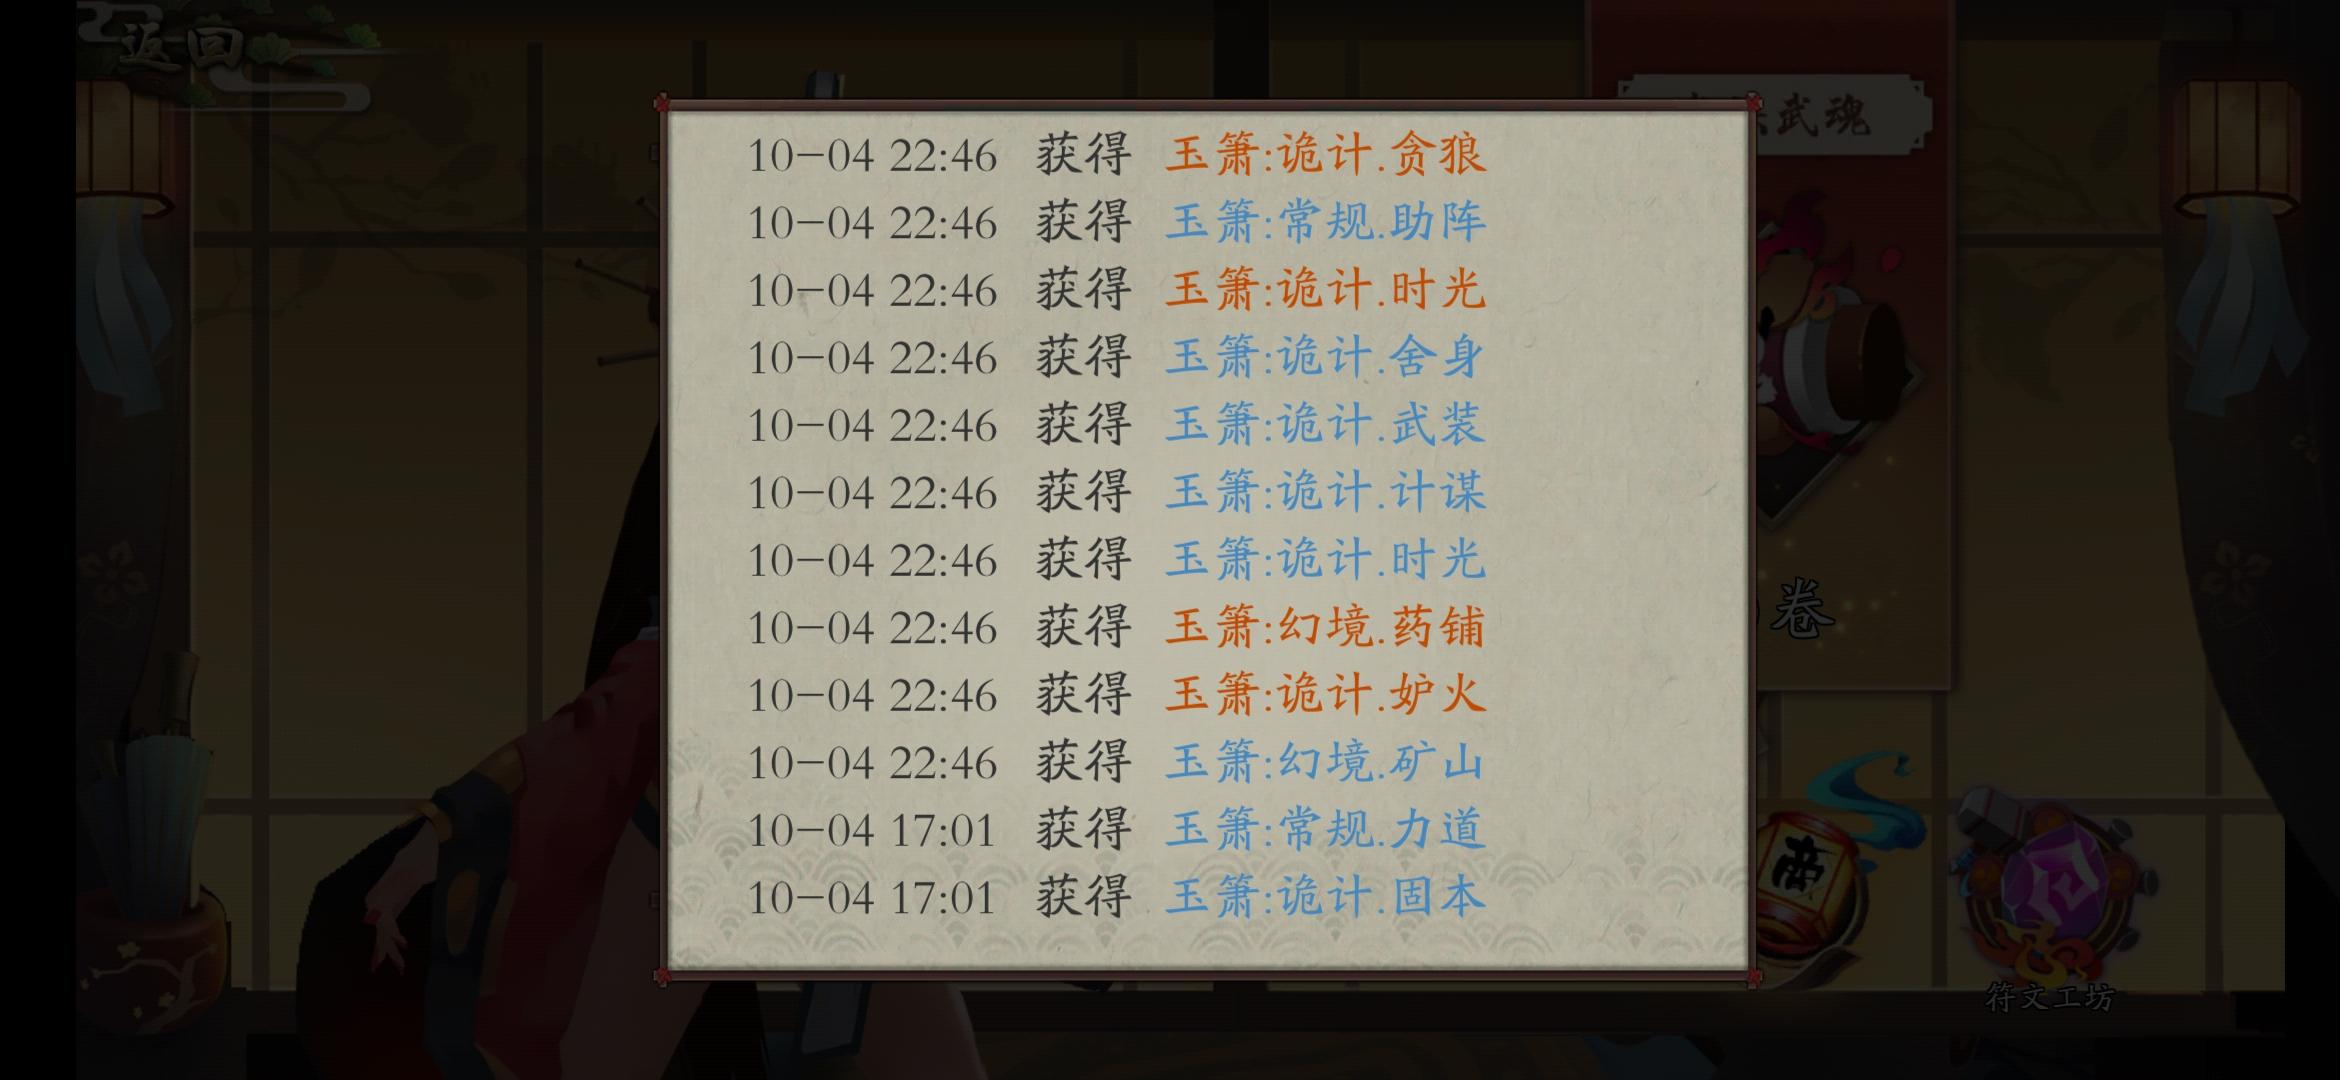 返回
武魂
10-04 22:46 获得 玉箫:诡计.贪狼
10-04 22:46 获得 玉箫:常规.助阵
10-04 22:46 获得 玉箫:诡计.时光
10-04 22:46 获得 玉箫:诡计.舍身
10-04 22:46 获得 玉箫:诡计.武装
10-04 22:46 获得 玉箫:诡计.计谋
10-04 22:46 获得 玉箫:诡计.时光
10-04 22:46 获得 玉箫:幻境.药铺
10-04 22:46 获得 玉箫:诡计.妒火
10-04 22:46 获得 玉箫:幻境.矿山
10-04 17:01 获得 玉箫:常规.力道
10-04 17:01 获得 玉箫:诡计.固本
卷
符文工坊